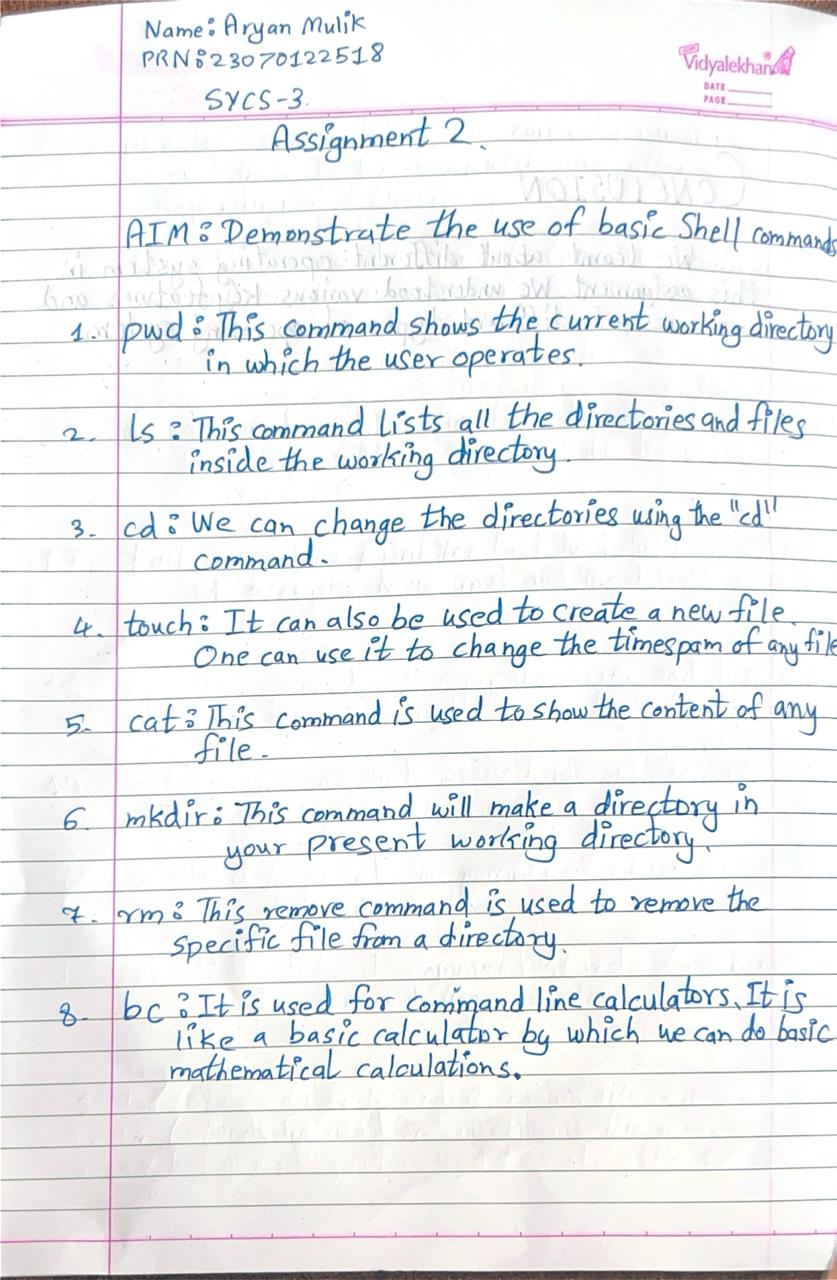 Name: Aryan Mulik
PRN: 23070122518
SYCS-3.
Vidyalekhan
DATE
PAGE
Assignment 2.
CONCLUSION
AIM: Demonstrate the use of basic Shell commands
1. pwd: This command shows the current working directory
in which the user operates.
2. ls: This command lists all the directories and files
inside the working directory.
3. cd: We can change the directories using the "cd"
command.
4. touch: It can also be used to create a new file.
One can use it to change the timespam of any file
5. cat: This command is used to show the content of any
file.
6. mkdir: This command will make a directory in
your present working directory.
7. rm: This remove command is used to remove the
specific file from a directory.
8. bc: It is used for command line calculators. It is
like a basic calculator by which we can do basic
mathematical calculations.